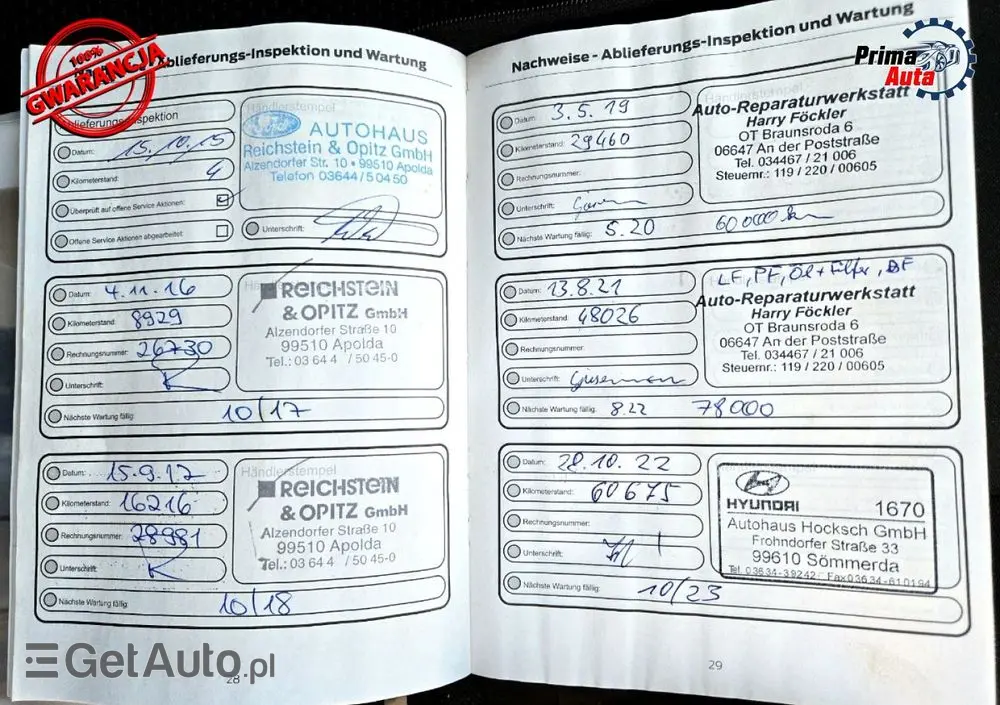 100%
GWARANCJA
Ablieferungs-Inspektion und Wartung
Ablieferungs-Inspektion
Datum: 15.10.15
Kilometerstand: 4
Überprüft auf offene Service Aktionen:
Offene Service Aktionen abgearbeitet:
Händlerstempel
Ford
AUTOHAUS
Reichstein & Opitz GmbH
Alzendorfer Str. 10 • 99510 Apolda
Telefon 03644/50450
Unterschrift:
Datum: 4.11.16
Kilometerstand: 8929
Rechnungsnummer: 26730
Unterschrift:
Nächste Wartung fällig: 10/17
REICHSTEIN
& OPITZ GmbH
Alzendorfer Straße 10
99510 Apolda
Tel.: 03 64 4 / 50 45-0
Datum: 15.9.17
Kilometerstand: 16216
Rechnungsnummer: 28981
Unterschrift:
Nächste Wartung fällig: 10/18
Händlerstempel
REICHSTEIN
& OPITZ GmbH
Alzendorfer Straße 10
99510 Apolda
Tel.: 03 64 4 / 50 45-0
28
Nachweise - Ablieferungs-Inspektion und Wartung
Datum: 3.5.19
Kilometerstand: 29460
Rechnungsnummer:
Unterschrift:
Nächste Wartung fällig: 5.20 60000 km
Auto-Reparaturwerkstatt
Harry Föckler
OT Braunsroda 6
06647 An der Poststraße
Tel. 034467 / 21 006
Steuernr.: 119 / 220 / 00605
Datum: 13.8.21
Kilometerstand: 48026
Rechnungsnummer:
Unterschrift:
Nächste Wartung fällig: 8.22 78000
LF, PF, Öl + Filter, BF
Auto-Reparaturwerkstatt
Harry Föckler
OT Braunsroda 6
06647 An der Poststraße
Tel. 034467 / 21 006
Steuernr.: 119 / 220 / 00605
Datum: 28.10.22
Kilometerstand: 60675
Rechnungsnummer:
Unterschrift:
Nächste Wartung fällig: 10/23
HYUNDAI 1670
Autohaus Hocksch GmbH
Frohndorfer Straße 33
99610 Sömmerda
Tel. 03634-39242 Fax 03634-610194
29
Prima
Auta
GetAuto.pl